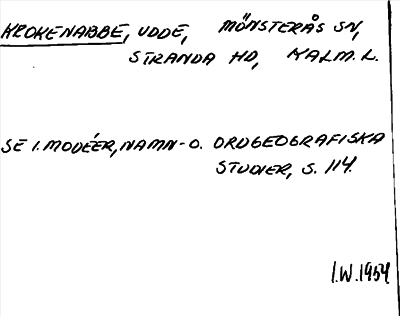 KROKENABBE, UDDE, MÖNSTERÅS SN,
STRANDA HD, KALM. L.
SE I. MODÉER, NAMN- O. ORDGEOGRAFISKA
STUDIER, S. 114.
I.W. 1954